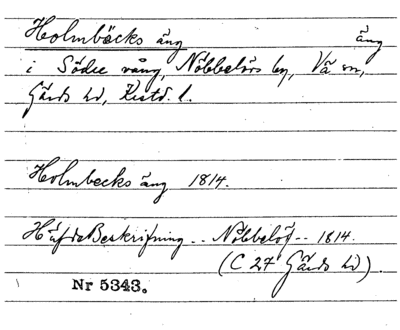 Holmbäcks äng äng
i Södre vång, Nöbbelövs by, Vä sn,
Gärds hd, Kristd. l.
Holmbecks äng 1814.
HäfdeBeskrifning .. Nöbbelöf -- 1814.
(C 27 Gärds hd).
Nr 5343.